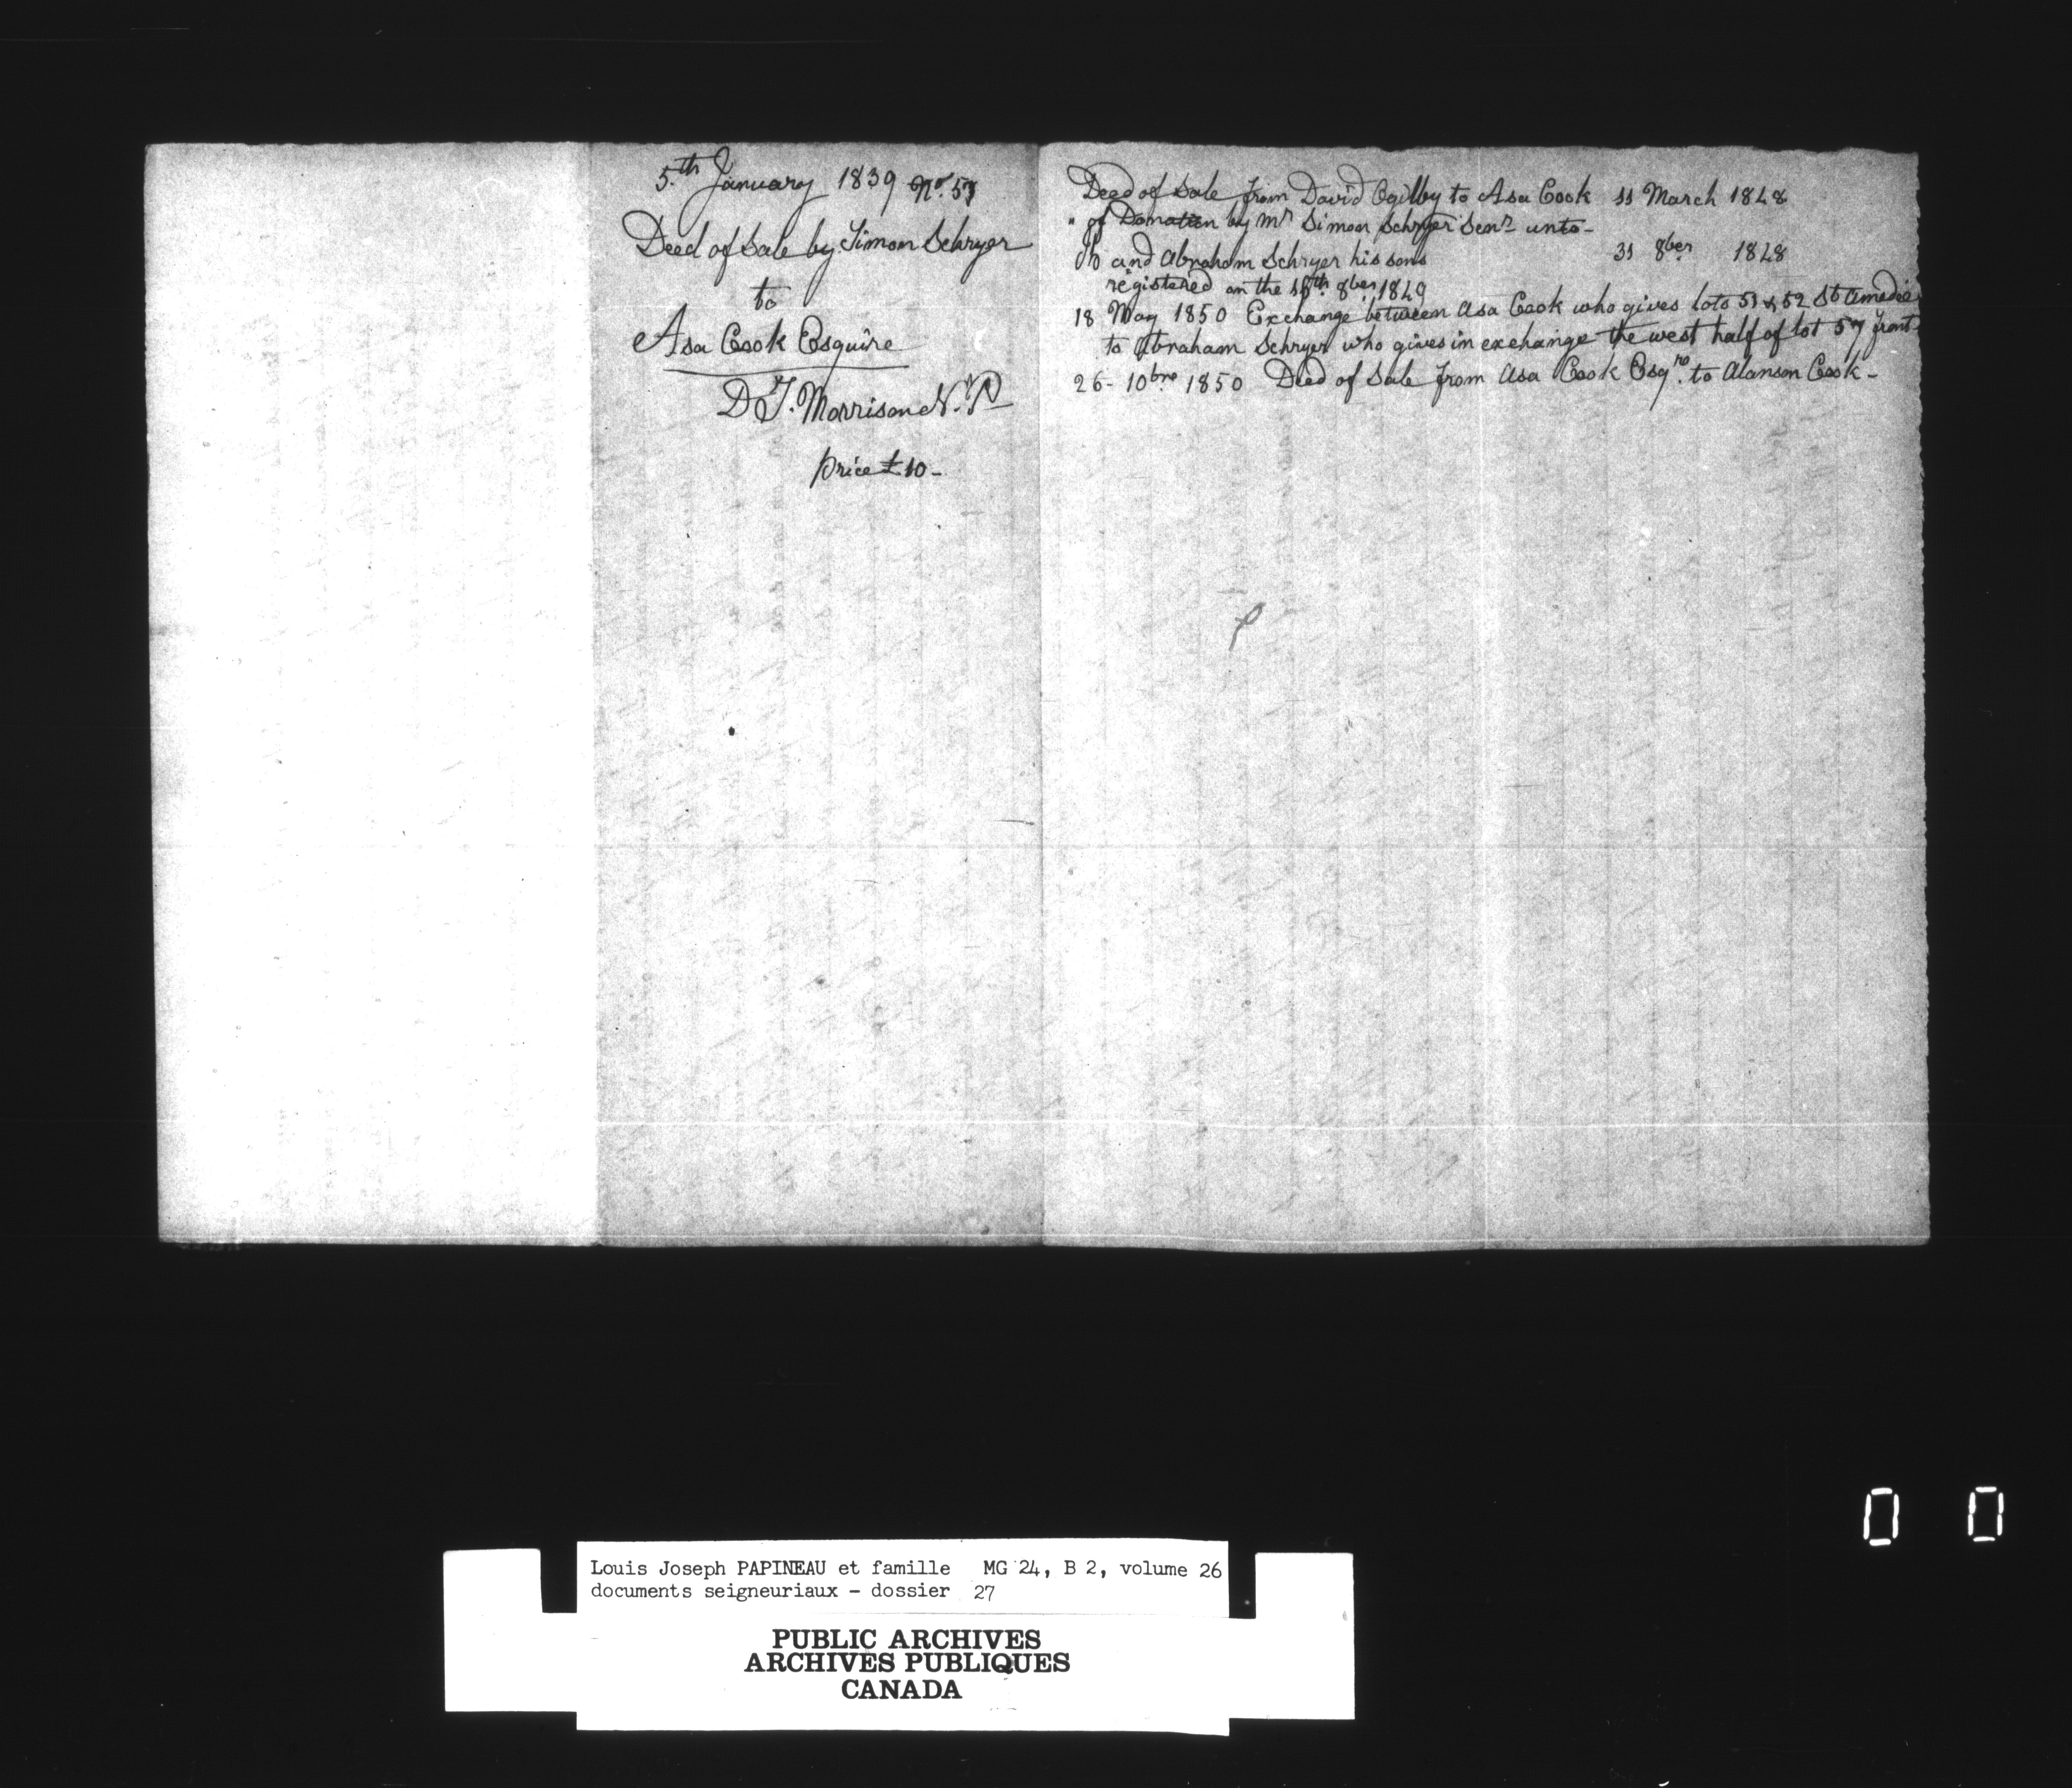 5.th January 1839 No. 57
Deed of Sale by Simon Schryer
to
Asa Cook Esquire
D T. Morrison N. P.
price £10 -
Deed of Sale from David Ogilby to Asa Cook 11 March 1848
" of Donation by Mr Simon Schryer Senr unto -
and Abraham Schryer his sons 31 8ber 1848
registered on the 8ber 1849
18 May 1850 Exchange between Asa Cook who gives lots 51 & 52 St Amedie
to Abraham Schryer who gives in exchange the west half of lot 57 front
26 - 10bre 1850 Deed of Sale from Asa Cook Esqre. to Alanson Cook -
Louis Joseph PAPINEAU et famille MG 24, B 2, volume 26
documents seigneuriaux - dossier 27
PUBLIC ARCHIVES
ARCHIVES PUBLIQUES
CANADA
0 0